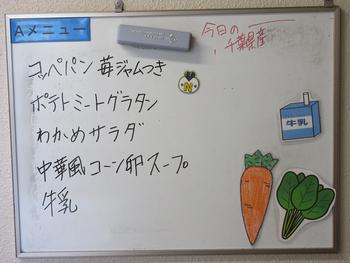 Aメニュー
今日の
千葉県産
コッペパン 苺ジャムつき
N
ポテトミートグラタン
牛乳
わかめサラダ
中華風コーン卵スープ
牛乳